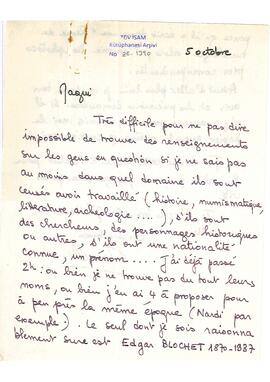 TDV İSAM
Kütüphanesi Arşivi
No 2E.1390
5 octobre
Maqui
Très difficile pour ne pas dire
impossible de trouver des renseignements
sur les gens en question si je ne sais pas
au moins dans quel domaine ils sont
censés avoir travaillé (histoire, numismatique,
littérature, archeologie ....), s'ils sont
des chercheurs, des personnages historiques
ou autres, s'ils ont une nationalité
connue, un prénom .... J'ai déjà passé
2h. ou bien je ne trouve pas du tout leurs
noms, ou bien j'en ai 4 à proposer pour
à peu près la même époque (Nardi par
exemple). Le seul dont je sois raisonna
blement sure est Edgar BLOCHET 1870-1937